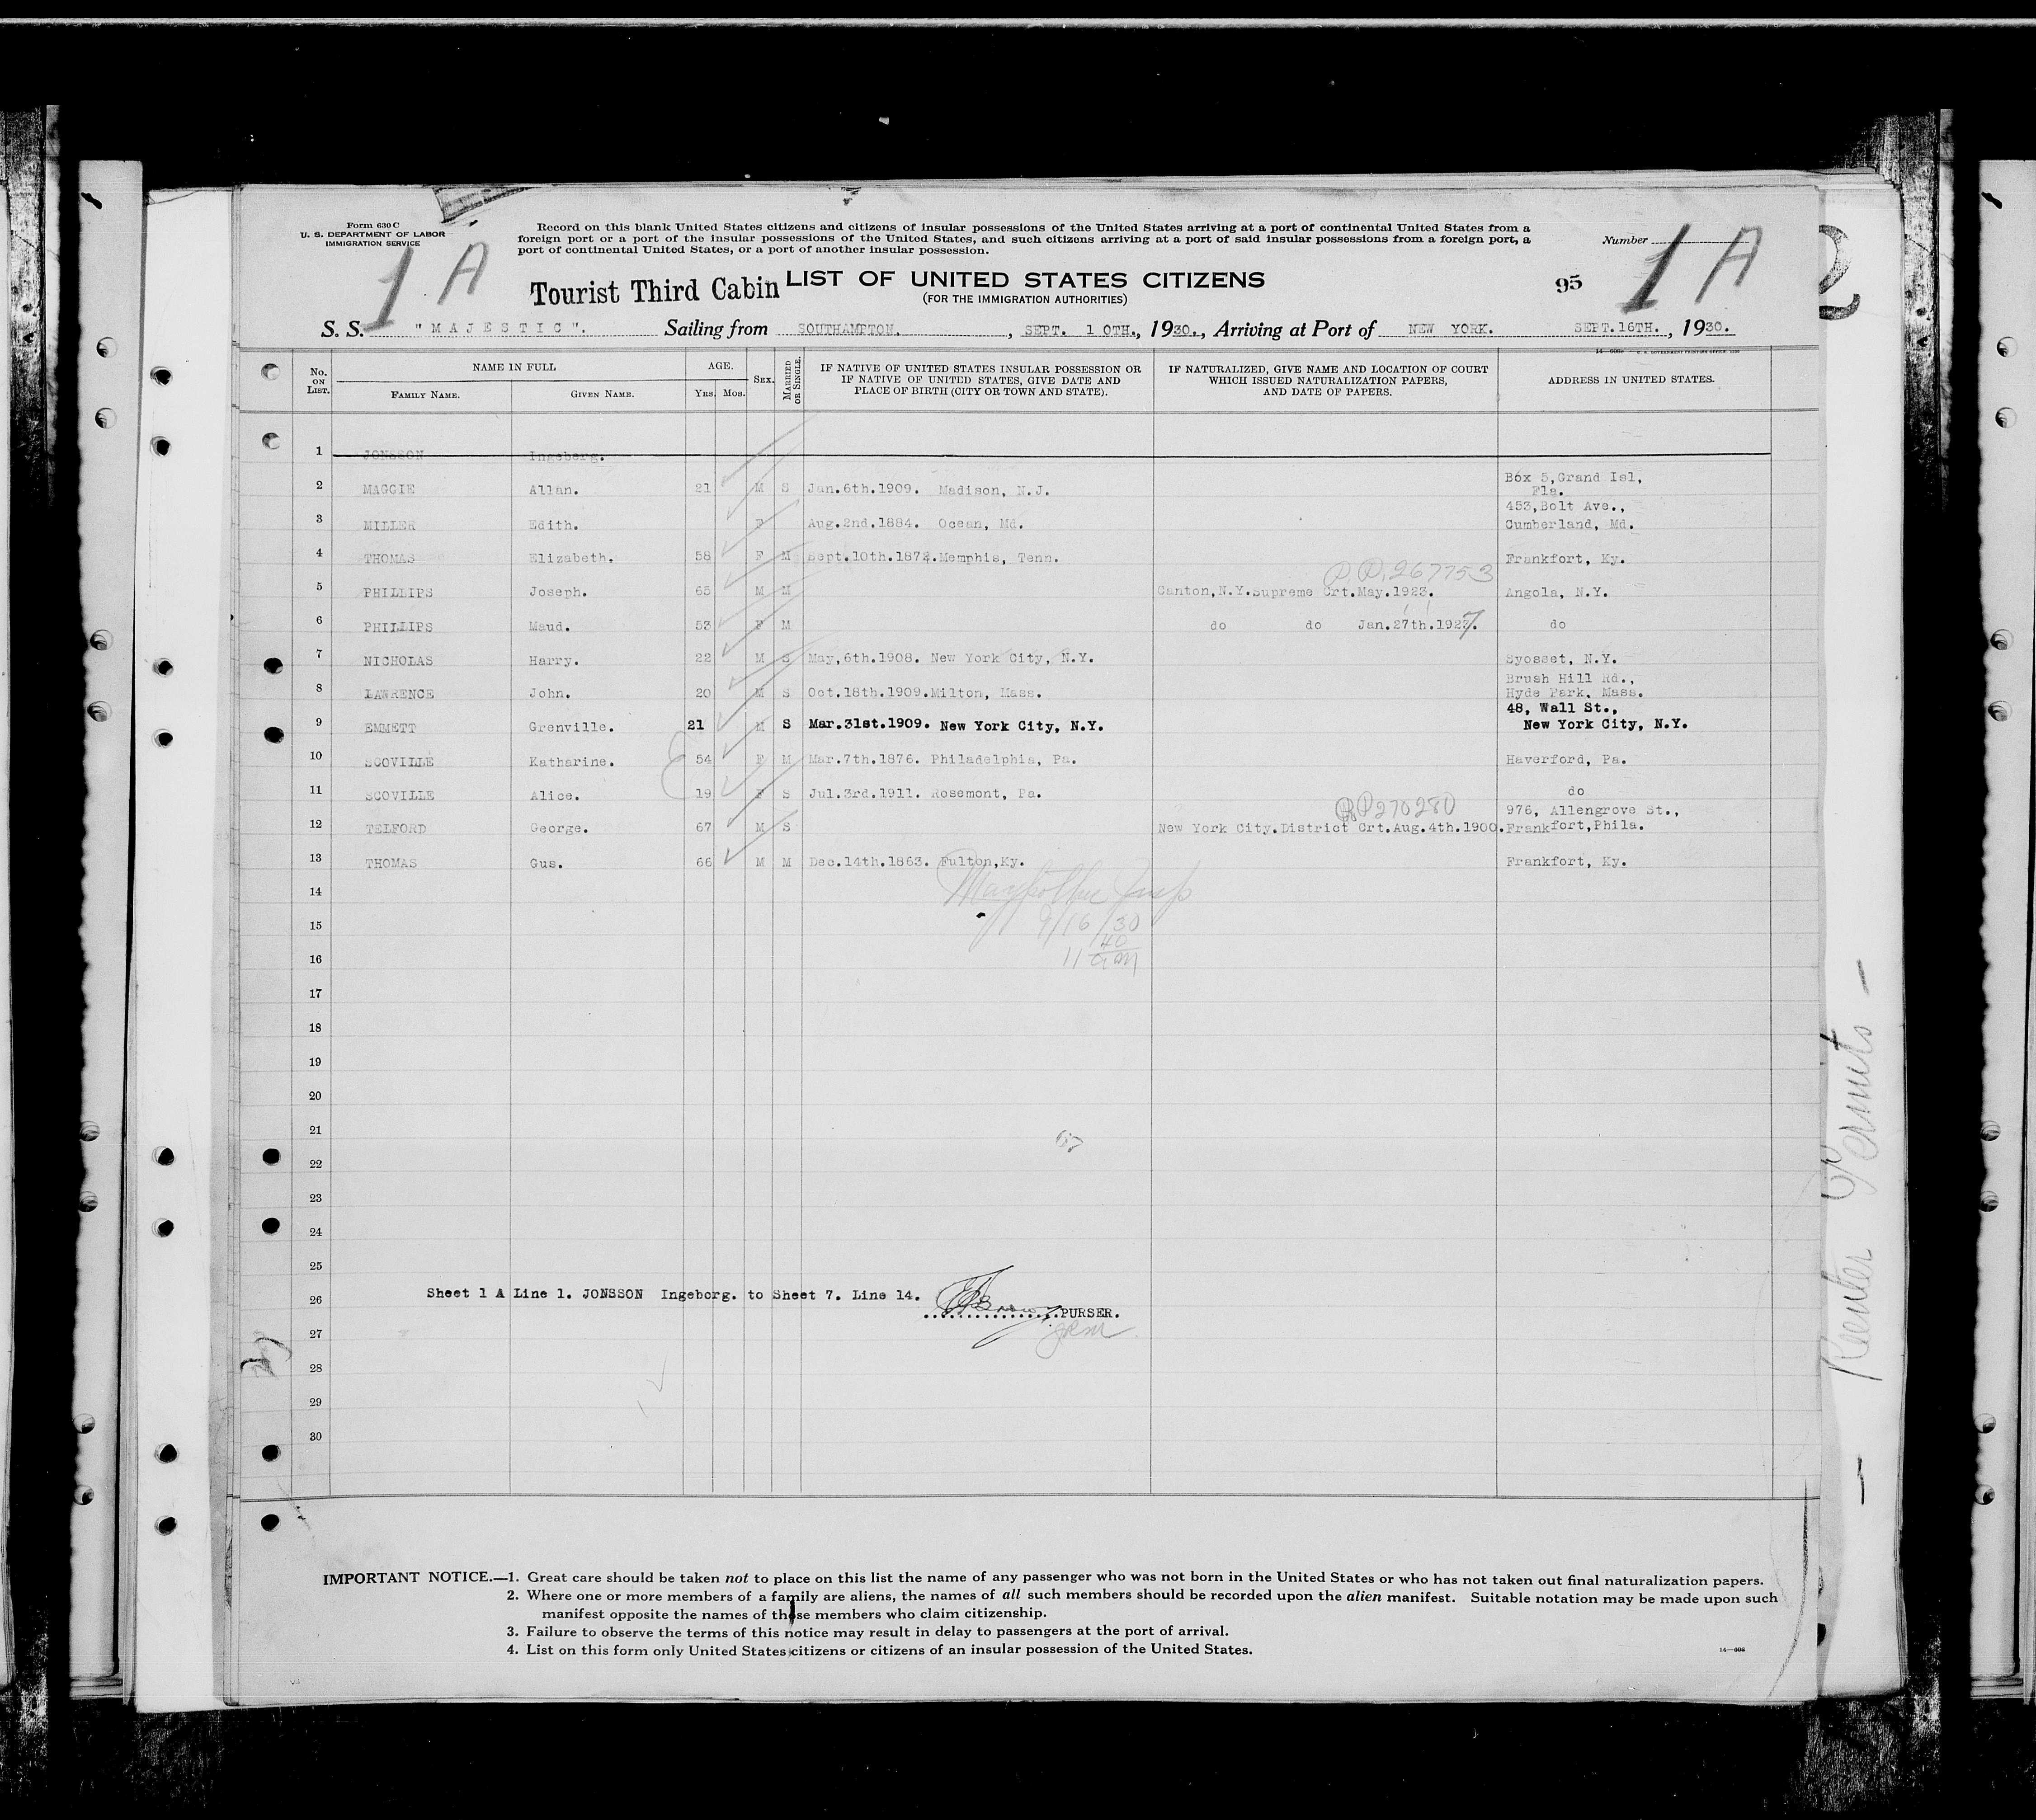 Form 630 C
U. S. DEPARTMENT OF LABOR
IMMIGRATION SERVICE
Record on this blank United States citizens and citizens of insular possessions of the United States arriving at a port of continental United States from a
foreign port or a port of the insular possessions of the United States, and such citizens arriving at a port of said insular possessions from a foreign port, a
port of continental United States, or a port of another insular possession.
Number
1 A
1 A
2
Tourist Third Cabin LIST OF UNITED STATES CITIZENS
95
(FOR THE IMMIGRATION AUTHORITIES)
S. S. "MAJESTIC". Sailing from SOUTHAMPTON. , SEPT. 1 0TH., 1930., Arriving at Port of NEW YORK. SEPT.16TH. , 1930.
No. ON LIST. NAME IN FULL FAMILY NAME. GIVEN NAME. AGE. YRS. MOS. SEX. MARRIED OR SINGLE. IF NATIVE OF UNITED STATES INSULAR POSSESSION OR IF NATIVE OF UNITED STATES, GIVE DATE AND PLACE OF BIRTH (CITY OR TOWN AND STATE). IF NATURALIZED, GIVE NAME AND LOCATION OF COURT WHICH ISSUED NATURALIZATION PAPERS, AND DATE OF PAPERS. ADDRESS IN UNITED STATES.
1 JONSSON Ingeberg.
2 MAGGIE Allan. 21 M S Jan.6th.1909. Madison, N.J. Box 5,Grand Isl, Fla.
3 MILLER Edith. F Aug.2nd.1884. Ocean, Md. 453,Bolt Ave., Cumberland, Md.
4 THOMAS Elizabeth. 58 F M Sept.10th.1872.Memphis, Tenn. Frankfort, Ky.
P.P. 267753
5 PHILLIPS Joseph. 65 M M Canton,N.Y.Supreme Crt.May.1923. Angola, N.Y.
6 PHILLIPS Maud. 53 F M do do Jan.27th.1927. do
7 NICHOLAS Harry. 22 M S May,6th.1908. New York City, N.Y. Syosset, N.Y.
8 LAWRENCE John. 20 M S Oct.18th.1909.Milton, Mass. Brush Hill Rd., Hyde Park, Mass.
9 EMMETT Grenville. 21 M S Mar.31st.1909. New York City, N.Y. 48, Wall St., New York City, N.Y.
10 SCOVILLE Katharine. 54 F M Mar.7th.1876. Philadelphia, Pa. Haverford, Pa.
11 SCOVILLE Alice. 19 F S Jul.3rd.1911. Rosemont, Pa. do
PP270280
12 TELFORD George. 67 M S New York City.District Crt.Aug.4th.1900. 976, Allengrove St., Frankfort,Phila.
13 THOMAS Gus. 66 M M Dec.14th.1863. Fulton,Ky. Frankfort, Ky.
14
15 9/16/30
16 11 40 am
17
18
19
20
21
22
23
24
25
Sheet 1 A Line 1. JONSSON Ingeborg. to Sheet 7. Line 14.
26 PURSER.
27
28
29
30
Reenter Permits
IMPORTANT NOTICE.—1. Great care should be taken not to place on this list the name of any passenger who was not born in the United States or who has not taken out final naturalization papers.
2. Where one or more members of a family are aliens, the names of all such members should be recorded upon the alien manifest. Suitable notation may be made upon such
manifest opposite the names of those members who claim citizenship.
3. Failure to observe the terms of this notice may result in delay to passengers at the port of arrival.
4. List on this form only United States citizens or citizens of an insular possession of the United States.
14—606